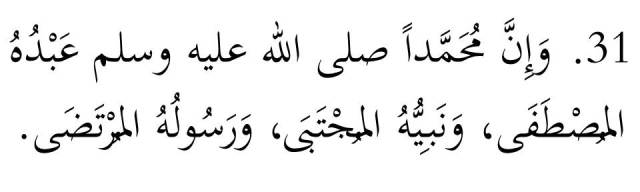 31. وَإِنَّ مُحَمَّداً صلى الله عليه وسلم عَبْدُهُ
المصْطَفَى، وَنَبِيُّهُ المجْتَبَى، وَرَسُولُهُ المرْتَضَى.